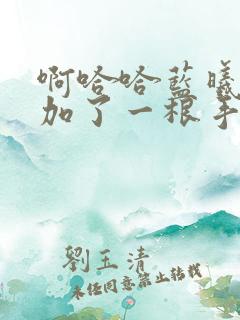 啊哈哈蓝曦
加了一根手
劉玉清
未经同意禁止转载